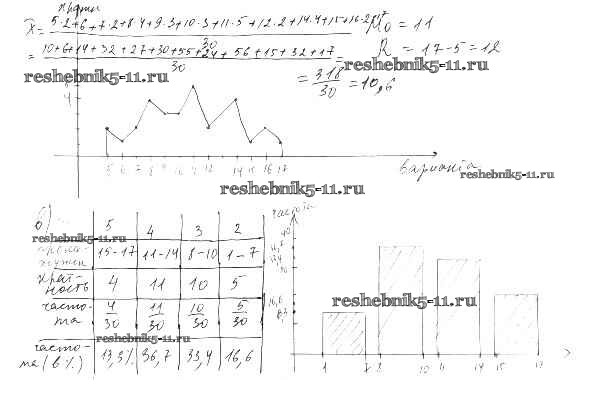 x̄ = 5·2+6+7·2+8·4+9·3+10·3+11·5+12·2+14·4+15+16·2+17
30
Mo = 11
= 10+6+14+32+27+30+55+24+56+15+32+17
30
R = 17-5 = 12
= 318/30 = 10,6
reshebnik5-11.ru
reshebnik5-11.ru
4
5 6 7 8 9 10 11 12 14 15 16 17
варианта
reshebnik5-11.ru
reshebnik5-11.ru
б)
5 4 3 2
reshebnik5-11.ru
15-17 11-14 8-10 1-7
крат-
ность 4 11 10 5
часто-
та 4/30 11/30 10/30 5/30
reshebnik5-11.ru
часто-
та (в %) 13,3% 36,7 33,4 16,6
частота
40
16,6
reshebnik5-11.ru
1 7 8 10 11 14 15 17